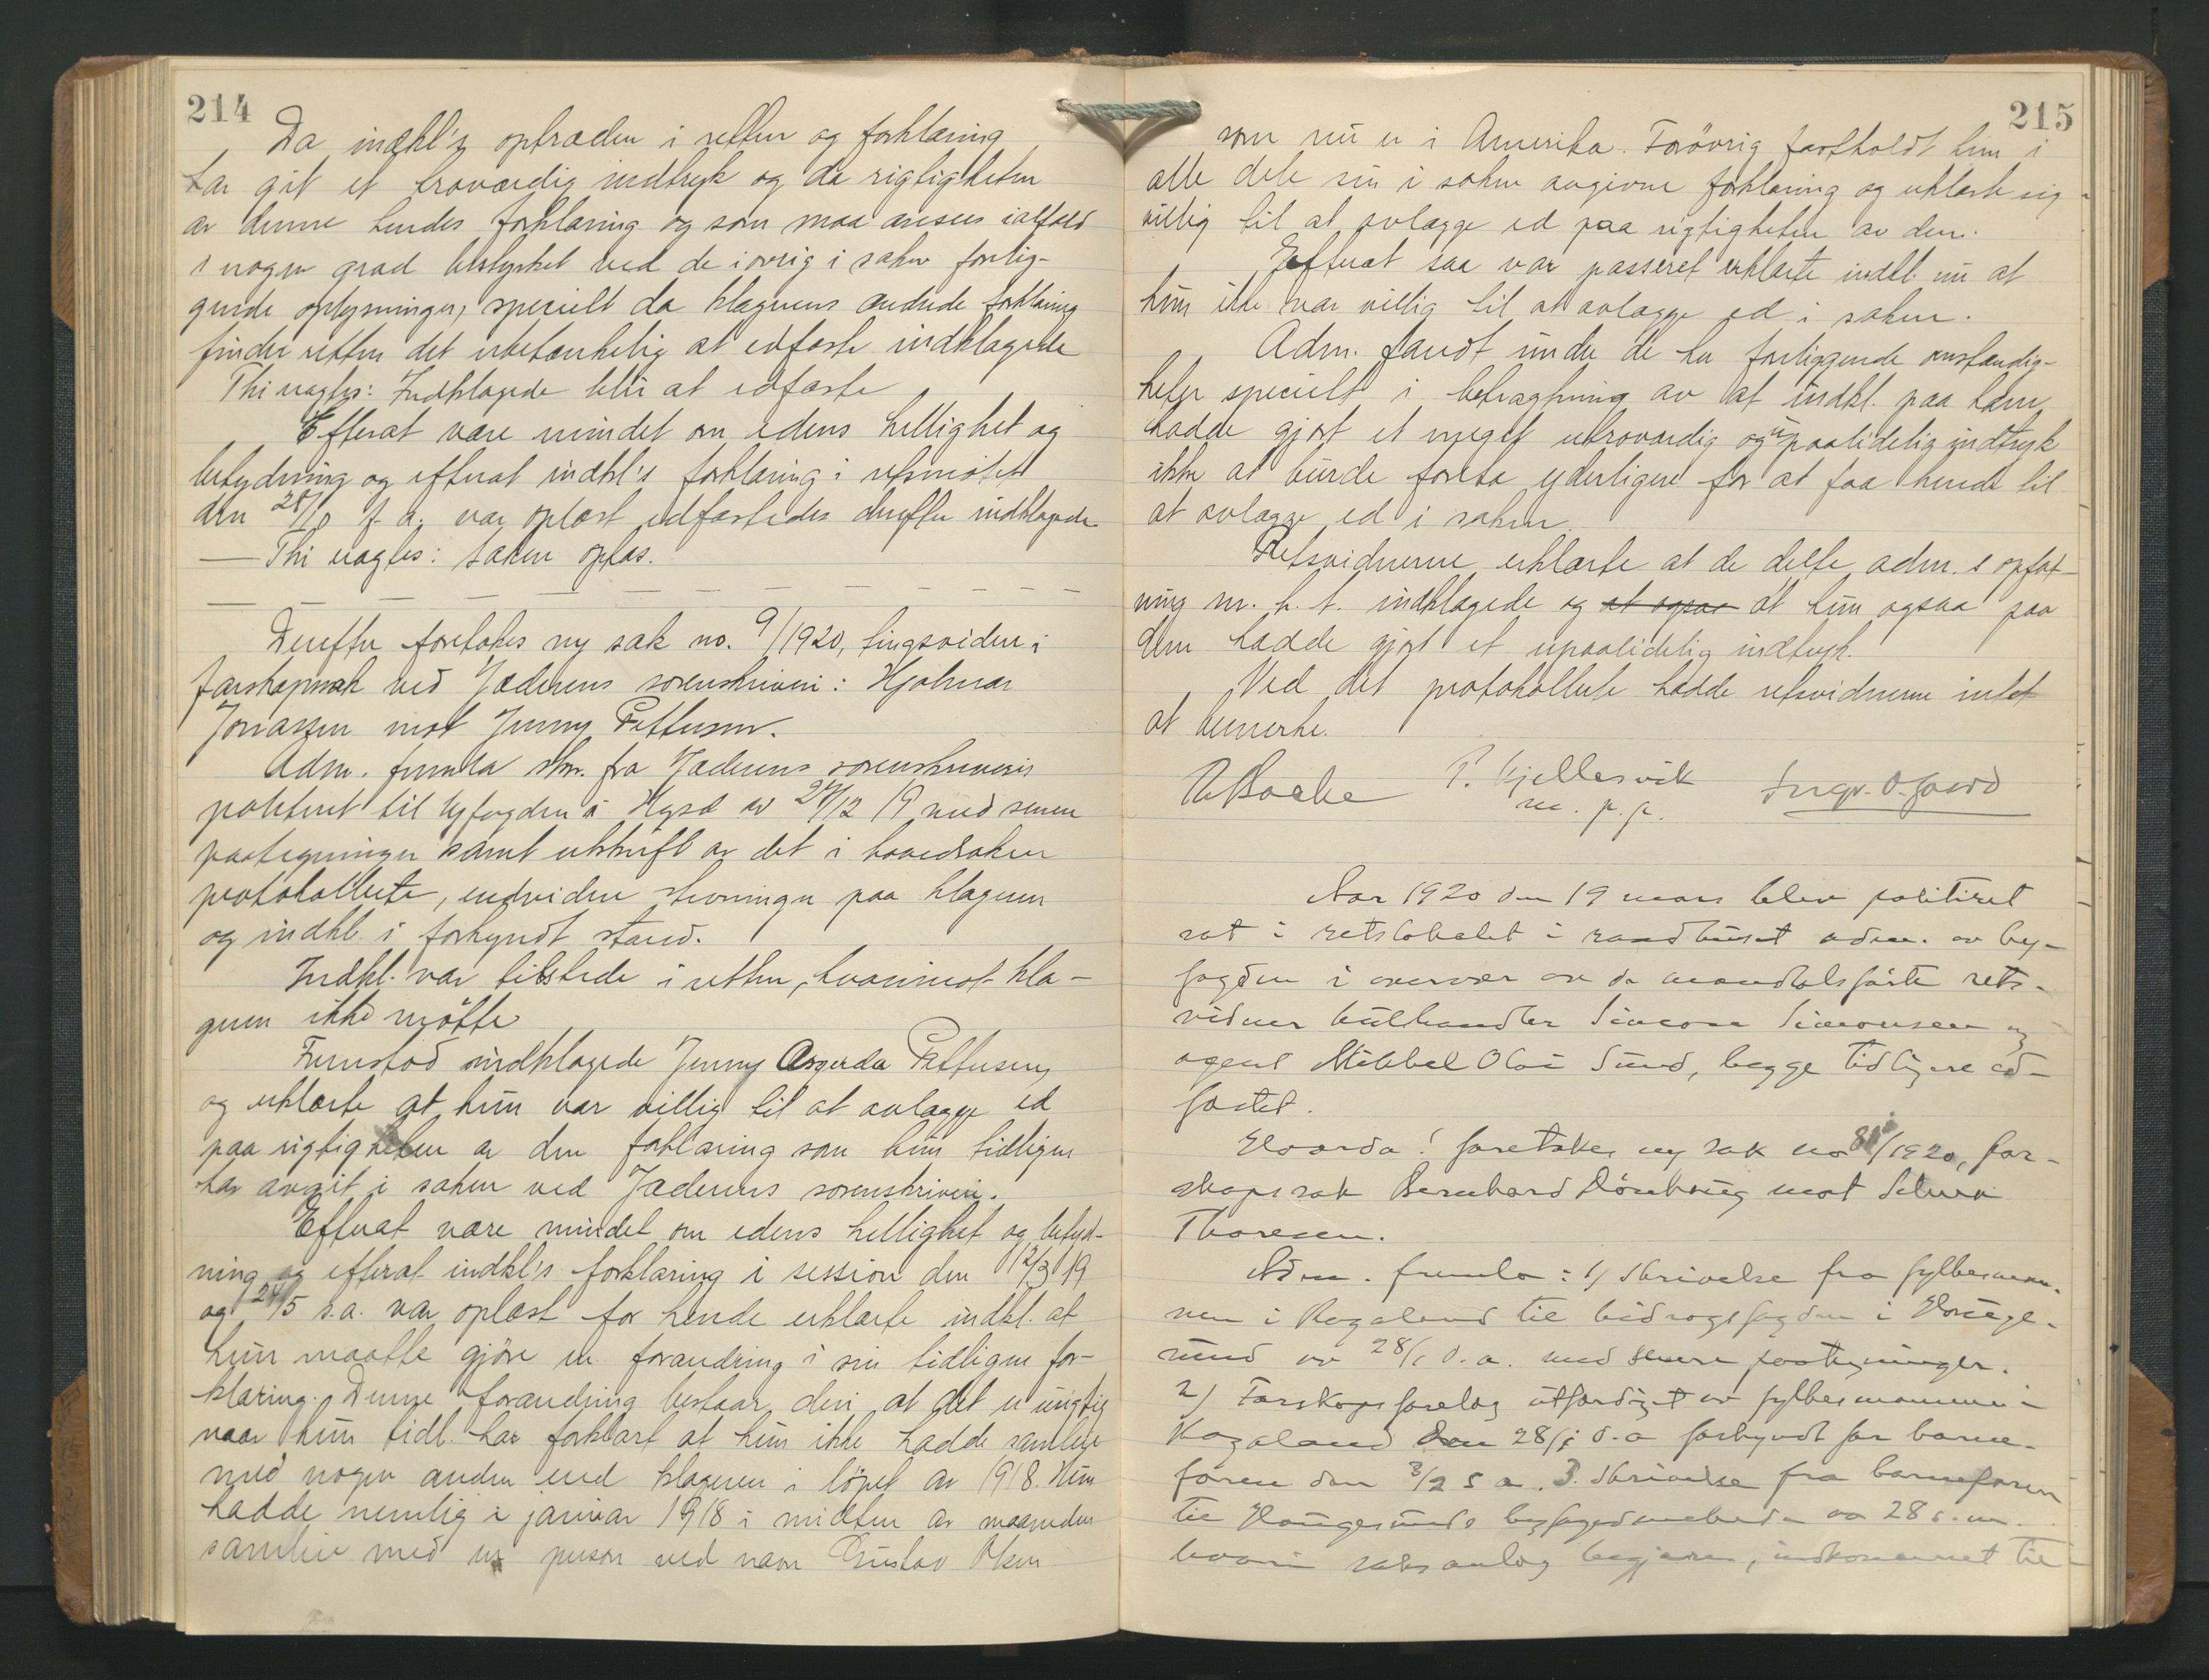 214
Da indkl's optræden i retten og forklaring
har git et troværdig indtryk og da rigtigheten
av denne hendes forklaring og som maa ansees ialfald
i nogen grad bestyrket ved de iövrig i saken forlig-
gende oplysninger, specielt da klagerens ændrede forklaring
finder retten det ubetænkelig at edfæste indklagede
Thi vagtes: Indklagede blir at edfæste
Efterat være mindet om edens hellighet og
betydning og efterat indkl's forklaring i retsmötet
den 28/10 f. a. var oplæst edfæstedes derefter indklagede
— Thi vagtes: saken oplas.
Derefter foretokes ny sak no. 9/1920, tingsvidne i
farskapssak ved Jæderens sorenskriveri: Hjalmar
Jonassen mot Jenny Pettersen.
Adm. fremla skr. fra Jæderens sorenskriveri
poststemplet til byfogden i Hgsd av 27/12 19 med senere
paategninger samt utskrift av det i hovedsaken
protokollerte, endvidere stevninger paa klageren
og indkl. i forkyndt stand.
Indkl. var tilstede i retten, hvorimot kla-
geren ikke mötte
Fremstod indklagede Jenny Asgerda Pettersen
og erklærte at hun var villig til at avlægge ed
paa rigtigheten av den forklaring som hun tidligere
har avgit i saken ved Jæderens sorenskriveri.
Efterat være mindet om edens hellighet og betyd-
ning og efterat indkl's forklaring i session den 12/3 19
og 24/5 s.a. var oplæst for hende erklærte indkl. at
hun maatte gjöre en forandring i sin tidligere for-
klaring. Denne forandring bestaar deri at det er urigtig
naar hun tidl. har forklart at hun ikke hadde samleie
med nogen anden end klageren i löpet av 1918. Hun
hadde nemlig i januar 1918 i midten av maaneden
samleie med en person ved navn Gustav Olsen
215
som nu er i Amerika. Forövrig fastholdt hun i
alle dele sin i saken avgivne forklaring og erklærte sig
villig til at avlægge ed paa rigtigheten av den.
Efterat saa var passeret erklærte indkl. nu at
hun ikke var villig til at avlægge ed i saken.
Adm. fandt under de her forliggende omstændig-
heter specielt i betragtning av at indkl. paa ham
hadde gjort et meget utroværdig og upaalidelig indtryk
ikke at burde foreta yderligere for at faa hende til
at avlægge ed i saken.
Retsvidnerne erklærte at de delte adm.s opfat-
ning m. h. t. indklagede og at ogsaa at hun ogsaa paa
dem hadde gjort et upaalidelig indtryk.
Ved det protokollerte hadde retsvidnerne intet
at bemerke.
P. Kjellesvik
m. p. p.
Aar 1920 den 19 mars blev politiret
sat i retslokalet i raadhuset adm. av by-
fogden i overvær av de mandtalsförte rets-
vidner kulhandler Simon Simonsen og
agent Mikkel Olai Sund, begge tidligere ed-
fæstet.
Hvorda! foretokes ny sak no 8/1920, far-
skapssak Bernhard mot
Thoresen.
Adm. fremla: 1) Skrivelse fra fylkesman-
nen i Rogaland til bidragsfogden i Hauge-
sund av 28/1 d. a. med senere paategninger.
2) Farskapsforelæg utfærdiget av fylkesmannen i
Rogaland den 28/1 d. a forkyndt for barne-
faren den 3/2 s a. 3. Skrivelse fra barnefaren
til Haugesunds byfogedembede av 28 s. m.
hvori saksanlæg begjæres, indkommet til